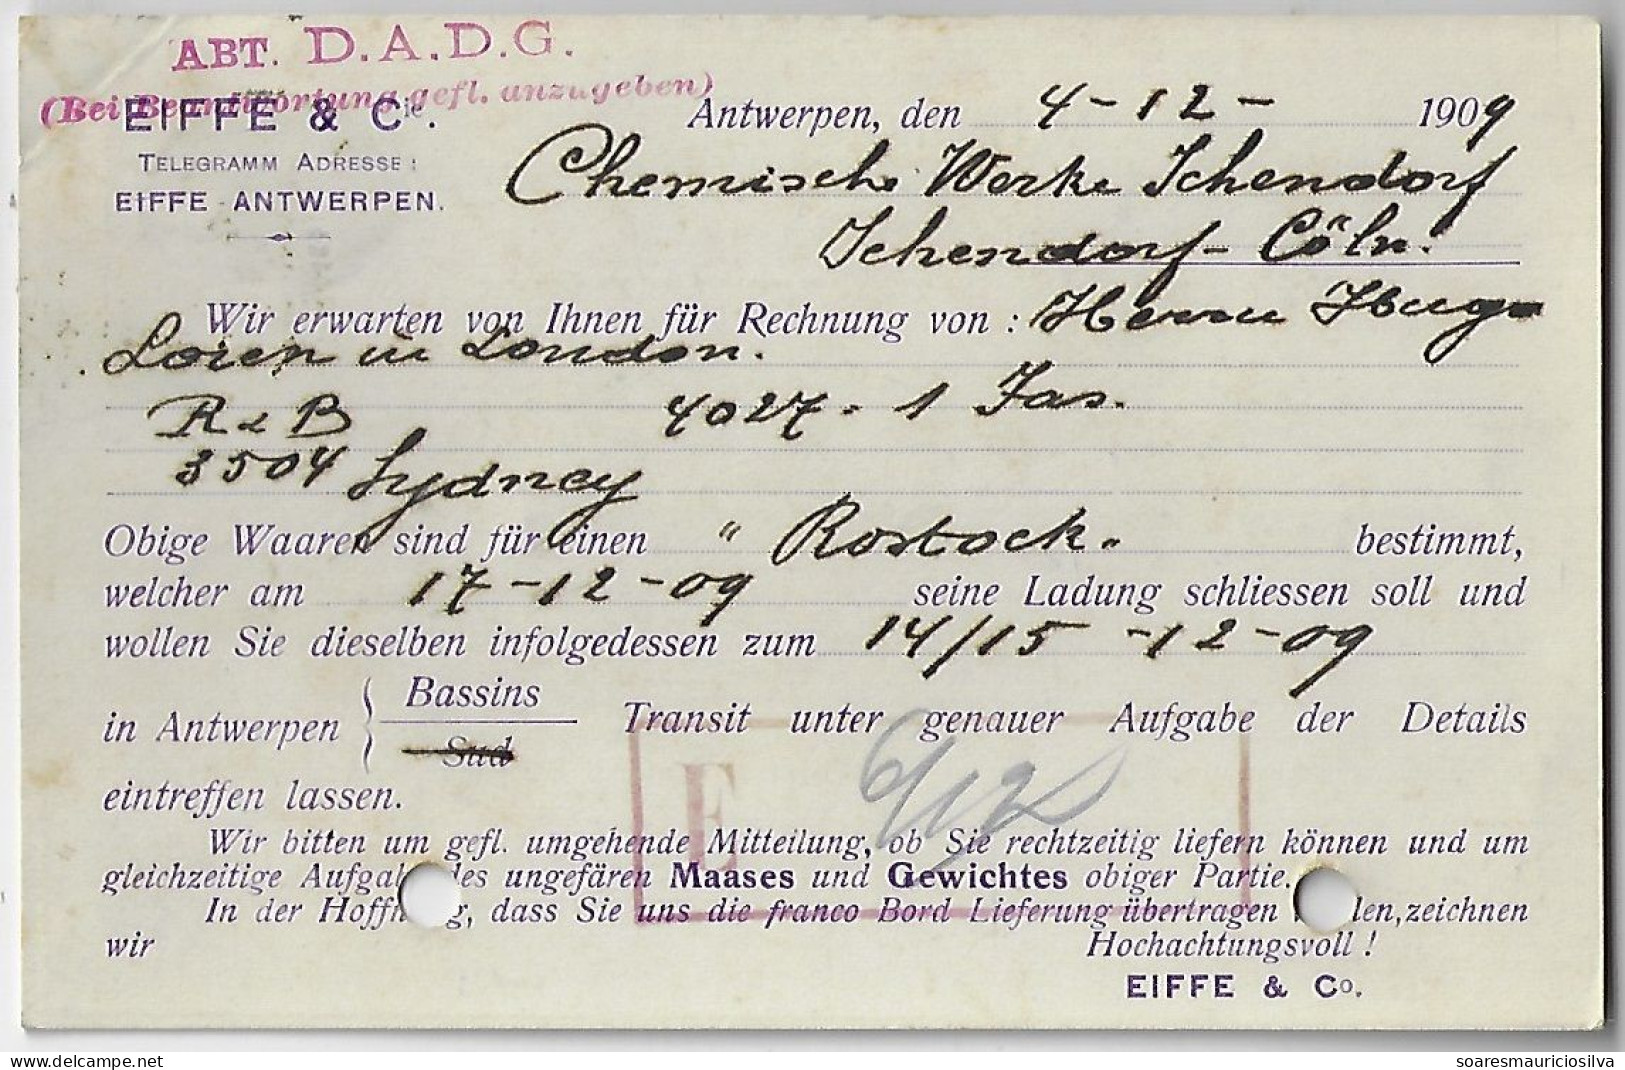 ABT. D.A.D.G.
(Bei Beantwortung gefl. anzugeben)
EIFFE & Cie.
TELEGRAMM ADRESSE:
EIFFE-ANTWERPEN.
Antwerpen, den 4-12- 1909
Chemische Werke Ichendorf
Ichendorf-Cöln.
Wir erwarten von Ihnen für Rechnung von: Herrn Hugo
Loren in London.
R & B 4027. 1 Fas.
3504 Sydney
Obige Waaren sind für einen "Rostock" bestimmt,
welcher am 17-12-09 seine Ladung schliessen soll und
wollen Sie dieselben infolgedessen zum 14/15-12-09
in Antwerpen { Bassins
Sud
} Transit unter genauer Aufgabe der Details
eintreffen lassen.
E 6/12
Wir bitten um gefl. umgehende Mitteilung, ob Sie rechtzeitig liefern können und um
gleichzeitige Aufgabe des ungefären Maases und Gewichtes obiger Partie.
In der Hoffnung, dass Sie uns die franco Bord Lieferung übertragen wollen, zeichnen
wir Hochachtungsvoll!
EIFFE & Co.
delcampe.net
soaresmauriciosilva